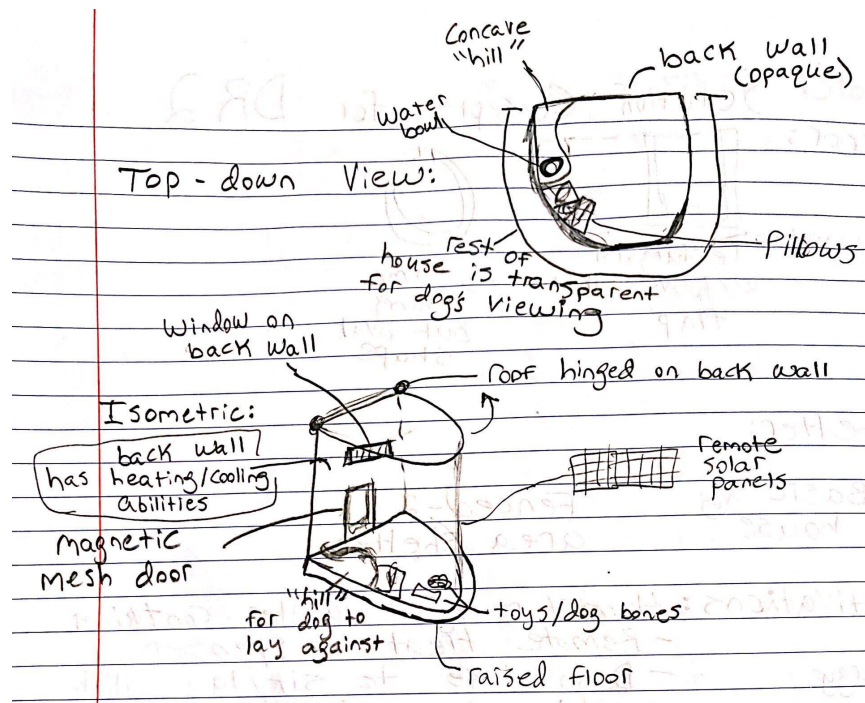 Concave
"hill"
back wall
(opaque)
Water
bowl
Top-down View:
Pillows
rest of
house is transparent
for dog's viewing
Window on
back wall
roof hinged on back wall
Isometric:
back wall
has heating/cooling
abilities
remote
solar
panels
magnetic
mesh door
"hill"
for dog to
lay against
toys/dog bones
raised floor